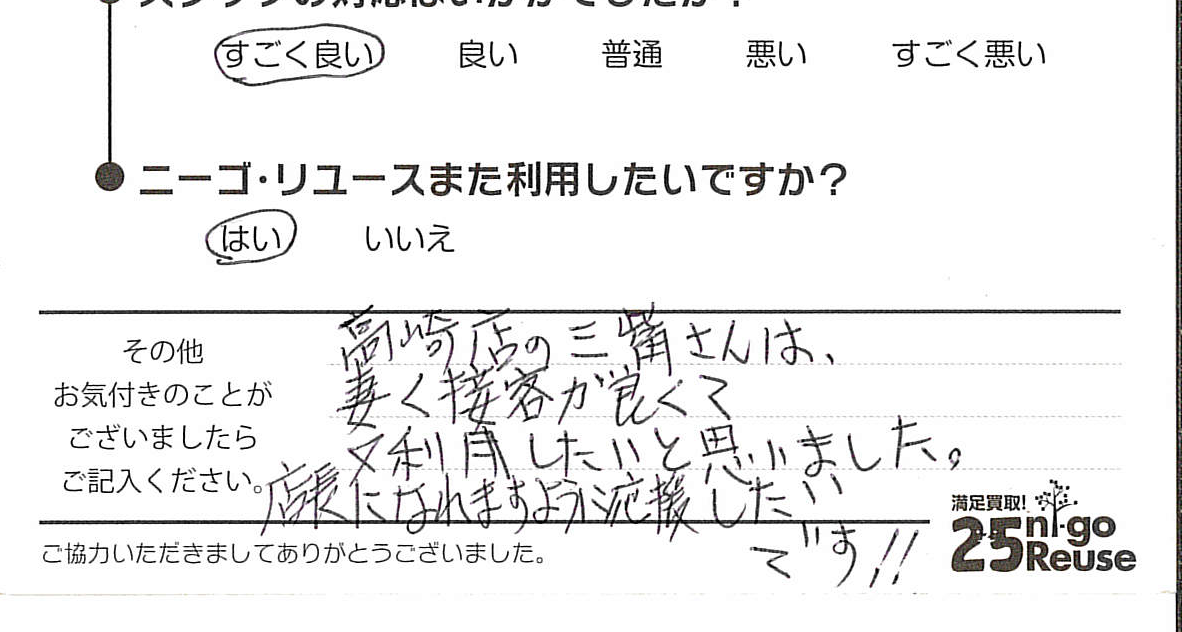 スタッフの対応はいかがでしたか?
すごく良い 良い 普通 悪い すごく悪い
ニーゴ・リユースまた利用したいですか?
はい いいえ
その他
お気付きのことが
ございましたら
ご記入ください。
高崎店の三觜さんは、
妻く接客が良くて
又利用したいと思いました。
店長になれますように応援したい
です!!
ご協力いただきましてありがとうございました。
満足買取!
25 ni-go
Reuse